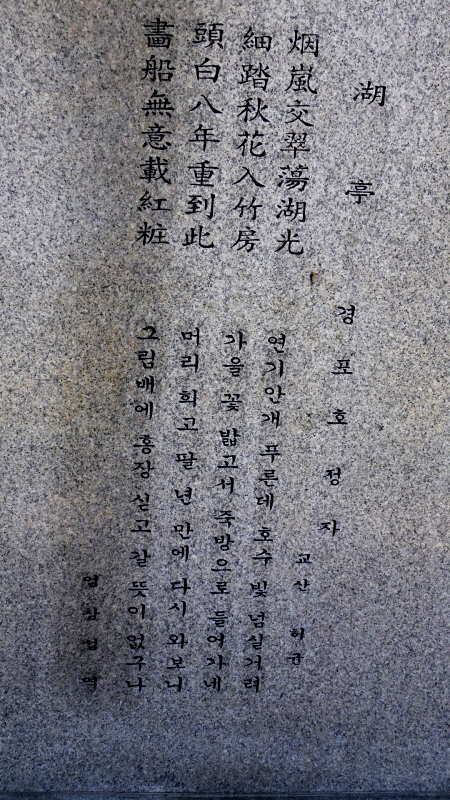 湖亭
烟嵐交翠蕩湖光
細踏秋花入竹房
頭白八年重到此
畵船無意載紅粧
경포호정자
교산 허균
연기안개 푸른데 호수 빛 넘실거려
가을 꽃 밟고서 죽방으로 들어가네
머리 희고 팔 년 만에 다시 와보니
그림배에 홍장 싣고 갈 뜻이 없구나